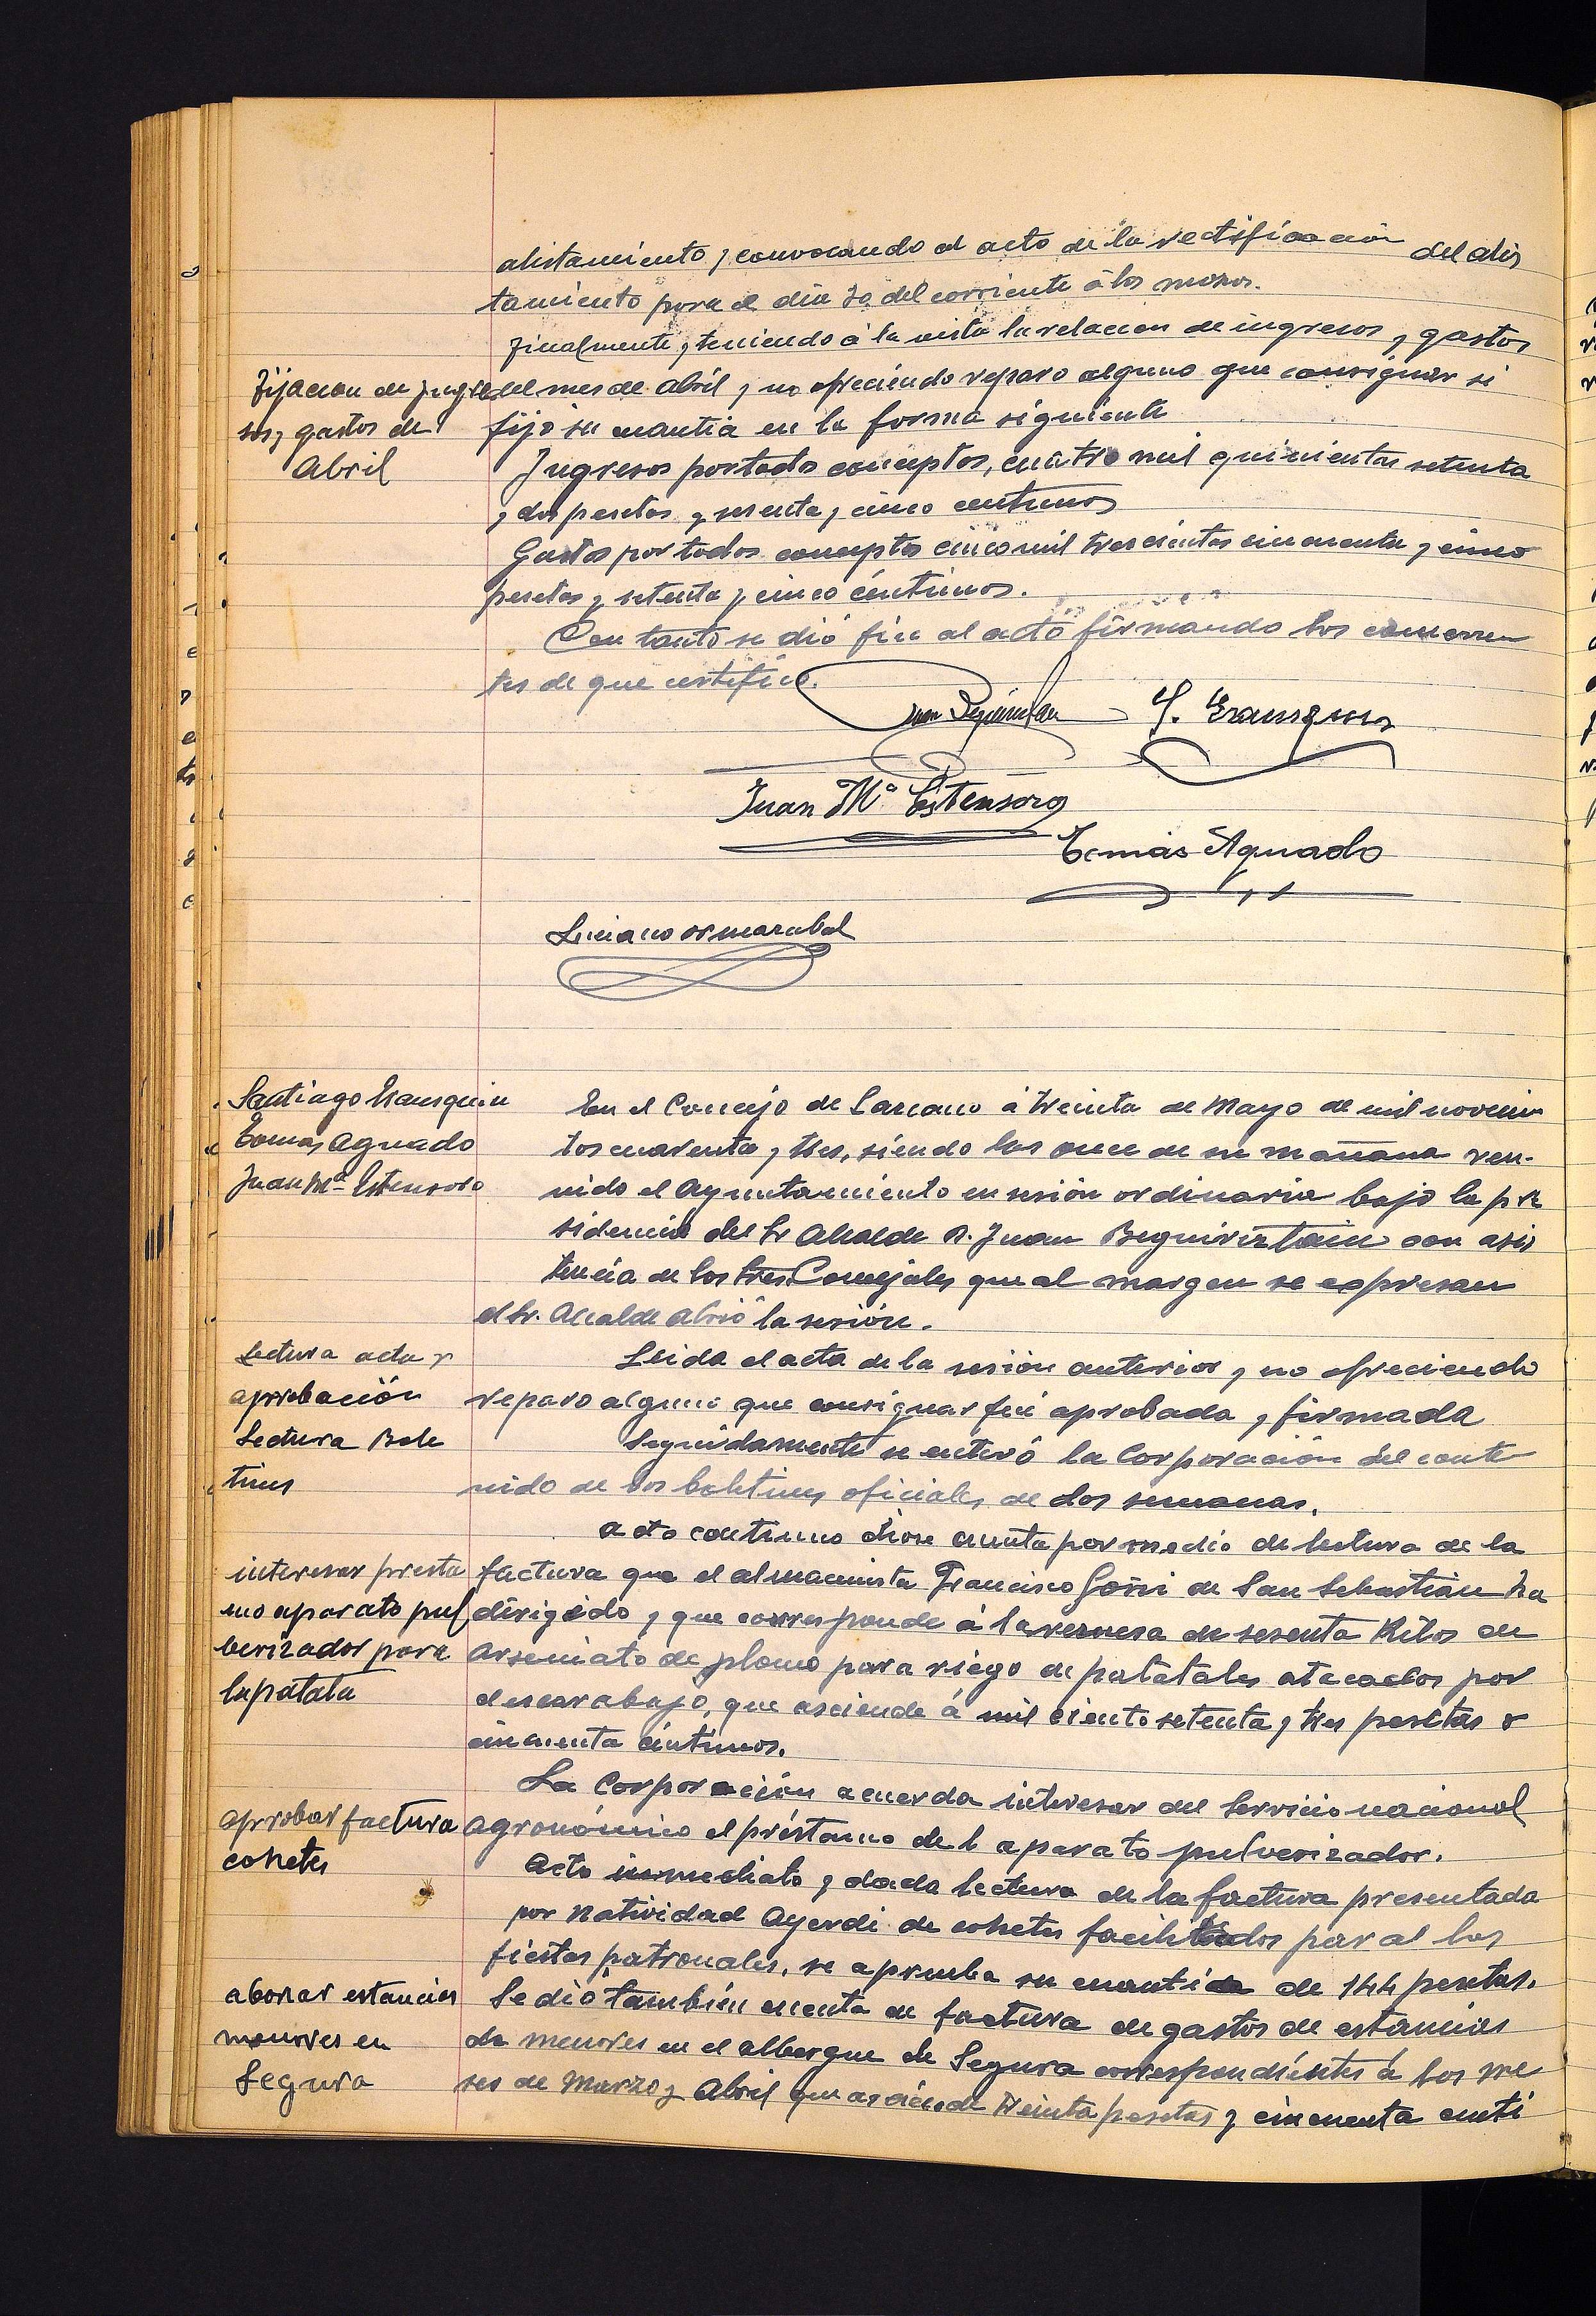 alistamiento y convocando al acto de la rectificación del alis
tamiento para el día 30 del corriente á los mozos.
Finalmente y teniendo á la vista la relacion de ingresos y gastos
Fijacion de Ingre
sos y gastos de
Abril
del mes de Abril y no ofreciendo reparo alguno que consignar se
fijó su cuantia en la forma siguiente
Ingresos por todos conceptos, cuatro mil quinientas setenta
y dos pesetas y sesenta y cinco centimos
Gastos por todos conceptos cinco mil trescientas cincuenta y cinco
pesetas y setenta y cinco céntimos.
Con tanto se dió fin al acto firmando los concurren
tes de que certifico.
Juan Beguiristain S. Erausquin
Juan Mª Estensoro
Tomás Aguado
Luciano ormazabal
Santiago Erausquin
Tomás Aguado
Juan Mª Estensoro
En el Concejo de Lazcano á treinta de Mayo de mil novecien
tos cuarenta y tres, siendo las once de su mañana reu-
nido el Ayuntamiento en sesión ordinaria bajo la pre
sidencia del Sr Alcalde D. Juan Beguiristain con asis
tencia de los tres Concejales que al margen se expresan
el Sr. Alcalde abrió la sesión.
Lectura acta y
aprobación
Leida el acta de la sesión anterior y no ofreciendo
reparo alguno que consignar fué aprobada y firmada
Lectura Bole
tines
Seguidamente se enteró la Corporación del conte
nido de los boletines oficiales de dos semanas.
Acto continuo diose cuenta por medio de lectura de la
interesar presta
mo aparato pul
berizador para
la patata
factura que el almacenista Francisco Goñi de San Sebastian ha
dirigido y que corresponde á la remesa de sesenta Kilos de
Arseniato de plomo para riego de patatales atacados por
el escarabajo, que asciende á mil ciento setenta y tres pesetas y
cincuenta céntimos.
La Corporación acuerda interesar del Servicio nacional
agronómico el préstamo de 1 aparato pulverizador.
aprobar factura
cohetes
Acto inmediato y dada lectura de la factura presentada
por Natividad Ayerdi de cohetes facilitados par al las
fiestas patronales, se aprueba su cuantida de 144 pesetas.
abonar estancias
menores en
Segura
Se dió también cuenta de factura de gastos de estancias
de menores en el albergue de Segura correspondientes á los me
ses de Marzo y Abril que asciende treinta pesetas y cincuenta centi